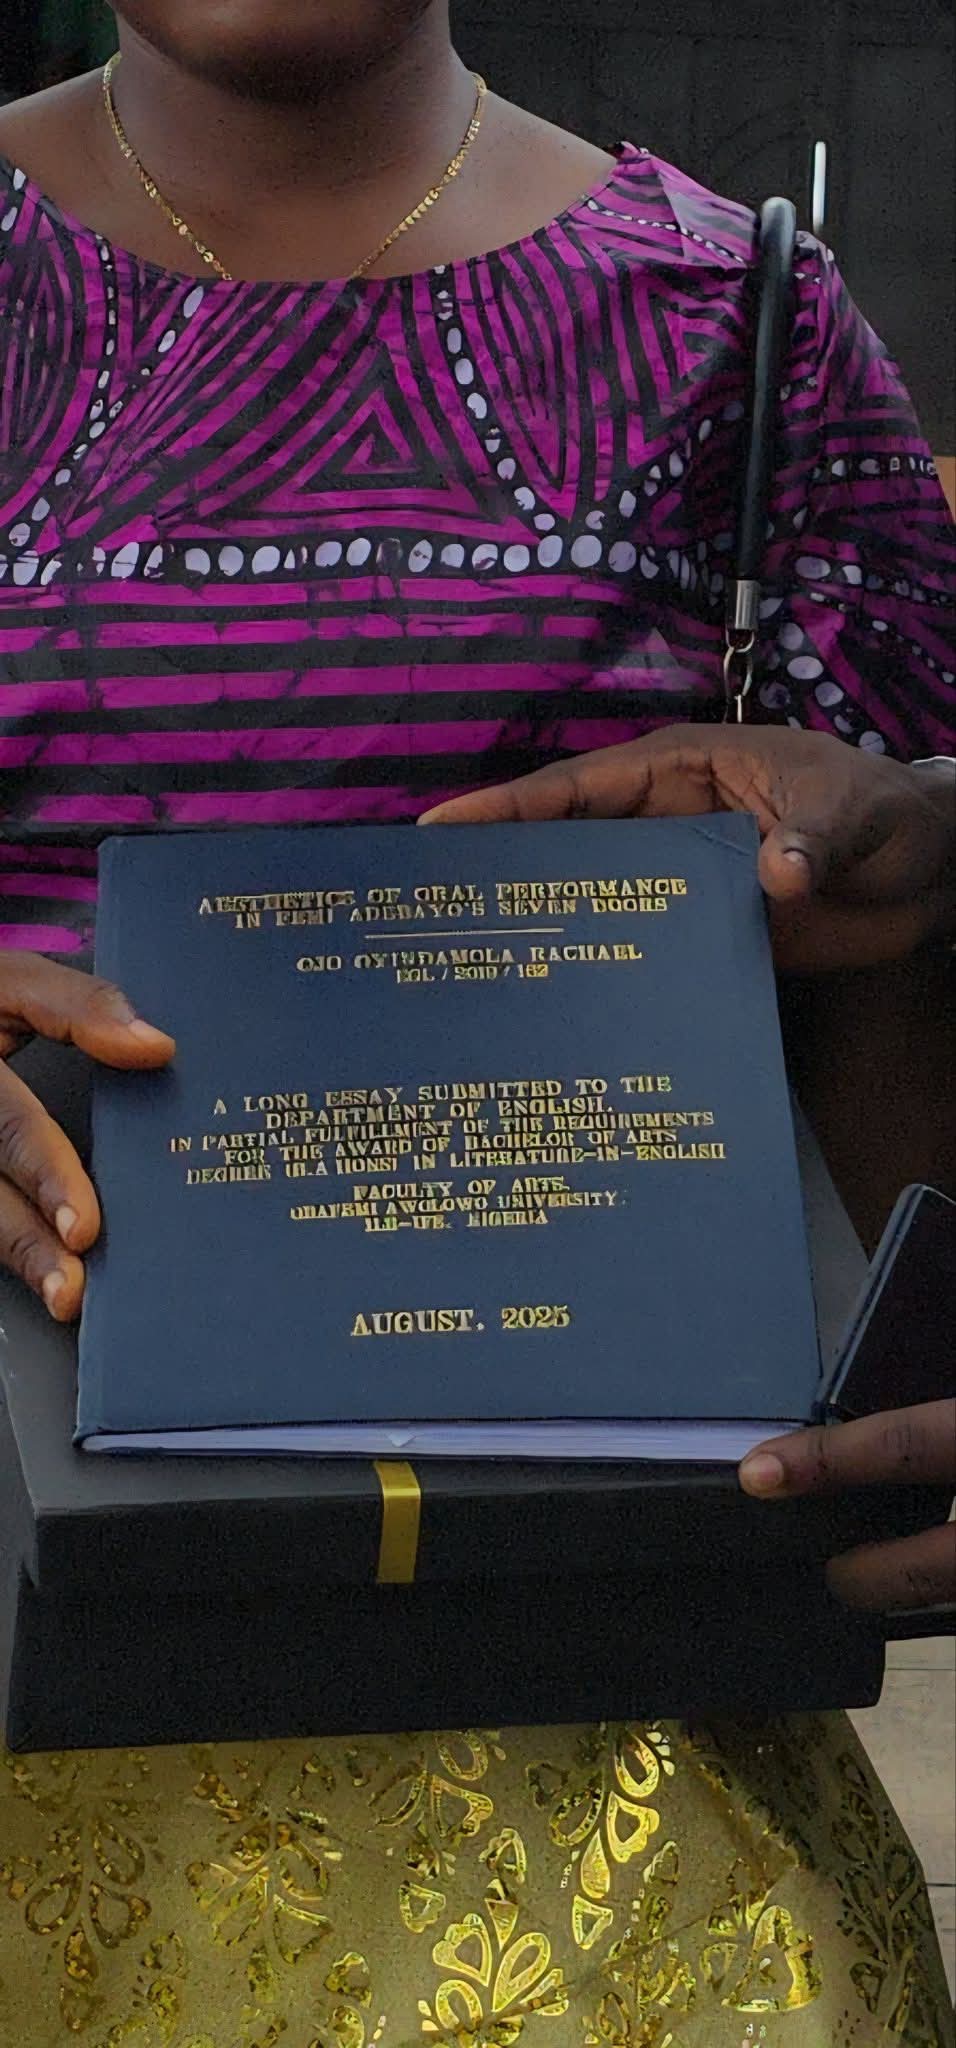 AESTHETICS OF ORAL PERFORMANCE
IN FEMI ADEBAYO'S SEVEN DOORS
OJO OYINDAMOLA RACHAEL
EGL / 2019 / 162
A LONG ESSAY SUBMITTED TO THE
DEPARTMENT OF ENGLISH,
IN PARTIAL FULFILLMENT OF THE REQUIREMENTS
FOR THE AWARD OF BACHELOR OF ARTS
DEGREE (B.A HONS) IN LITERATURE-IN-ENGLISH
FACULTY OF ARTS,
OBAFEMI AWOLOWO UNIVERSITY,
ILE-IFE, NIGERIA
AUGUST, 2025